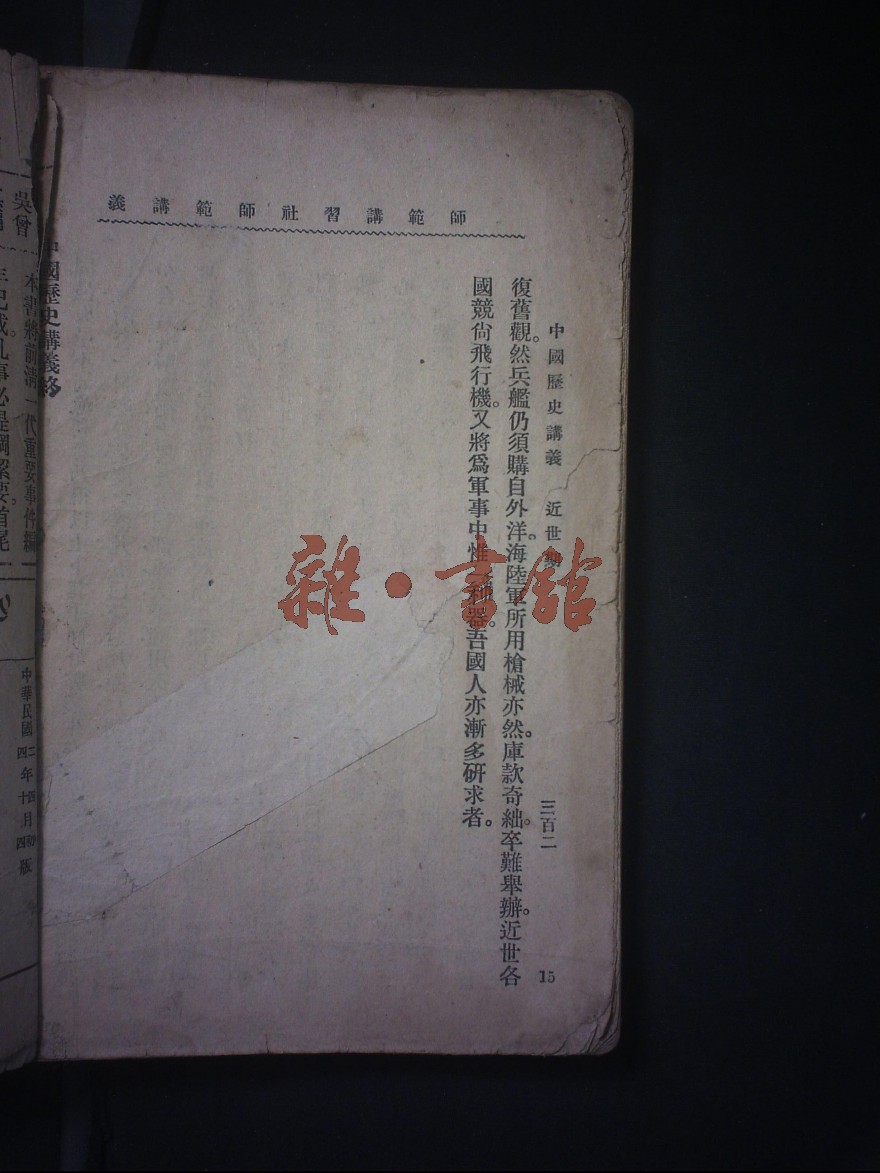 師範講習社師範講義
中國歷史講義 近世
三百二
15
復舊觀。然兵艦仍須購自外洋。海陸軍所用槍械亦然。庫款奇絀。卒難舉辦。近世各
國競尙飛行機。又將爲軍事中惟 利器。吾國人亦漸多研求者。
雜·書館
中國歷史講義終
吳曾
本書將前淸一代重要事件編
中華民國